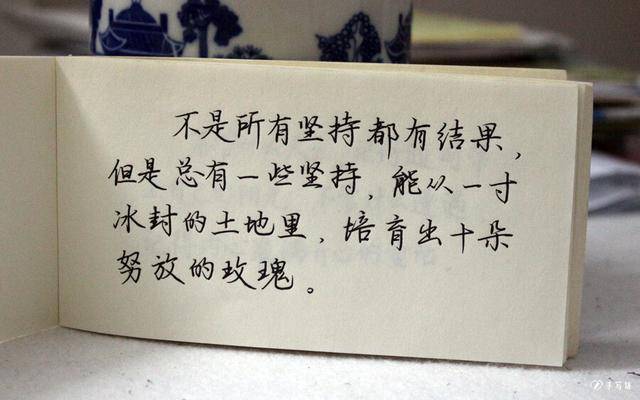 不是所有坚持都有结果，
但是总有一些坚持，能从一寸
冰封的土地里，培育出十朵
努放的玫瑰。
手写社